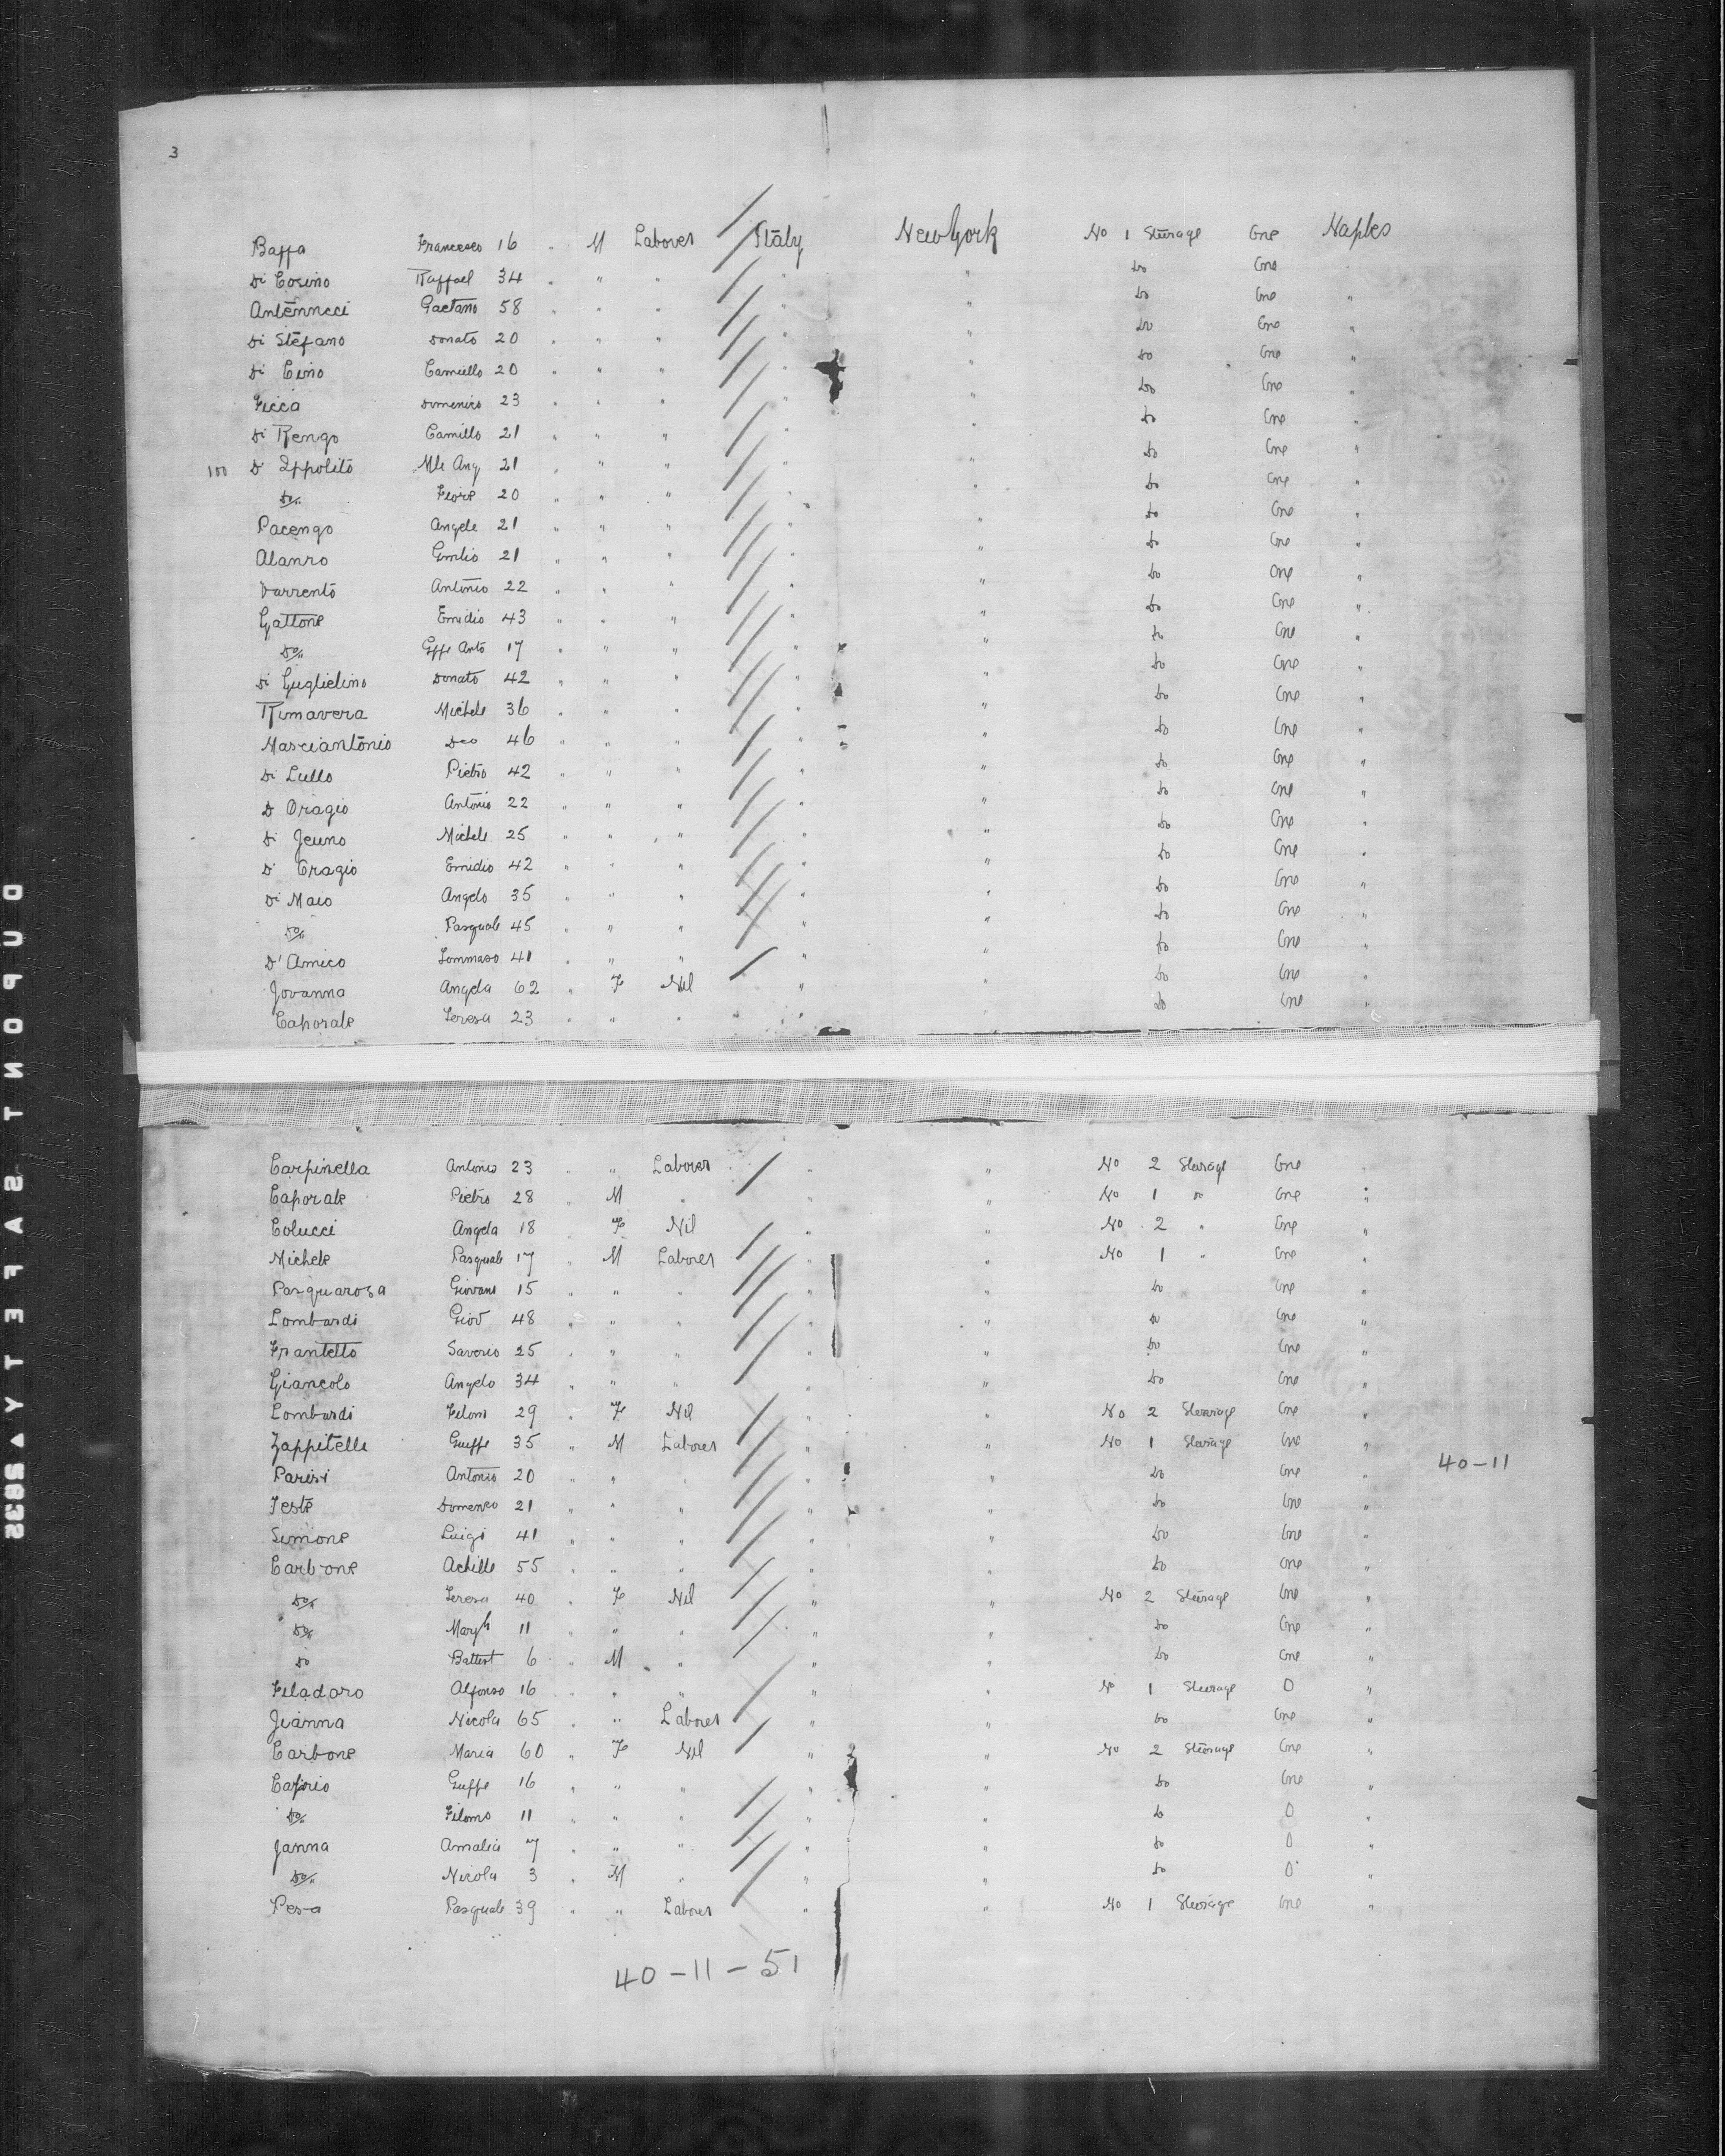 3
Baffa Francesco 16 " M Laborer Italy New York No 1 Steerage One Naples
Di Cosimo Raffael 34 " " " " " Do One "
Antennucci Gaetano 58 " " " " " Do One "
Di Stefano Donato 20 " " " " " Do One "
Di Cino Camiello 20 " " " " " Do One "
Ficca Domenico 23 " " " " " Do One "
Di Renzo Camillo 21 " " " " " Do One "
100 D' Ippolito Mle Ang 21 " " " " " Do One "
Do Fiore 20 " " " " " Do One "
Pacengo Angele 21 " " " " " Do One "
Alanro Emilio 21 " " " " " Do One "
Darrento Antonio 22 " " " " " Do One "
Gattone Emidio 43 " " " " " Do One "
Do Gffe Anto 17 " " " " " Do One "
Di Guglielino Donato 42 " " " " " Do One "
Rimavera Michele 36 " " " " " Do One "
Masciantonio Deo 46 " " " " " Do One "
Di Lullo Pietro 42 " " " " " Do One "
D Oragio Antonio 22 " " " " " Do One "
Di Jeuno Michele 25 " " " " " Do One "
D' Oragio Emidio 42 " " " " " Do One "
Di Maio Angelo 35 " " " " " Do One "
Do Pasquale 45 " " " " " Do One "
D'Amico Tommaso 41 " " " " " Do One "
Jovanna Angela 62 " F Nil " " Do One "
Caporale Teresa 23 " " " " " Do One "
Carpinella Antonio 23 " " Laborer " " No 2 Steerage One "
Caporale Pietro 28 " M " " " No 1 Do One "
Colucci Angela 18 " F Nil " " No 2 " One "
Michele Pasquale 17 " M Laborer " " No 1 " One "
Pasquarosa Giovani 15 " " " " " Do One "
Lombardi Giov 48 " " " " " Do One "
Frantetto Saverio 25 " " " " " Do One "
Giancolo Angelo 34 " " " " " Do One "
Lombardi Filom 29 " F Nil " " No 2 Steerage One "
Zappitelli Guffe 35 " M Laborer " " No 1 Steerage One "
40-11
Parisi Antonio 20 " " " " " Do One "
Teste Domenico 21 " " " " " Do One "
Simone Luigi 41 " " " " " Do One "
Carbone Achille 55 " " " " " Do One "
Do Teresa 40 " F Nil " " No 2 Steerage One "
Do Margh 11 " " " " " Do One "
Do Battest 6 " M " " " Do One "
Filadoro Alfonso 16 " " " " " No 1 Steerage O "
Jianna Nicola 65 " " Laborer " " Do One "
Carbone Maria 60 " F Nil " " No 2 Steerage One "
Caprio Guffe 16 " " " " " Do One "
Do Filomo 11 " " " " " Do O "
Janna Amalia 7 " " " " " Do O "
Do Nicola 3 " M " " " Do O "
Pesa Pasquale 39 " " Laborer " " No 1 Steerage One "
40-11-51
DUPONT SAFETY ▲ S832